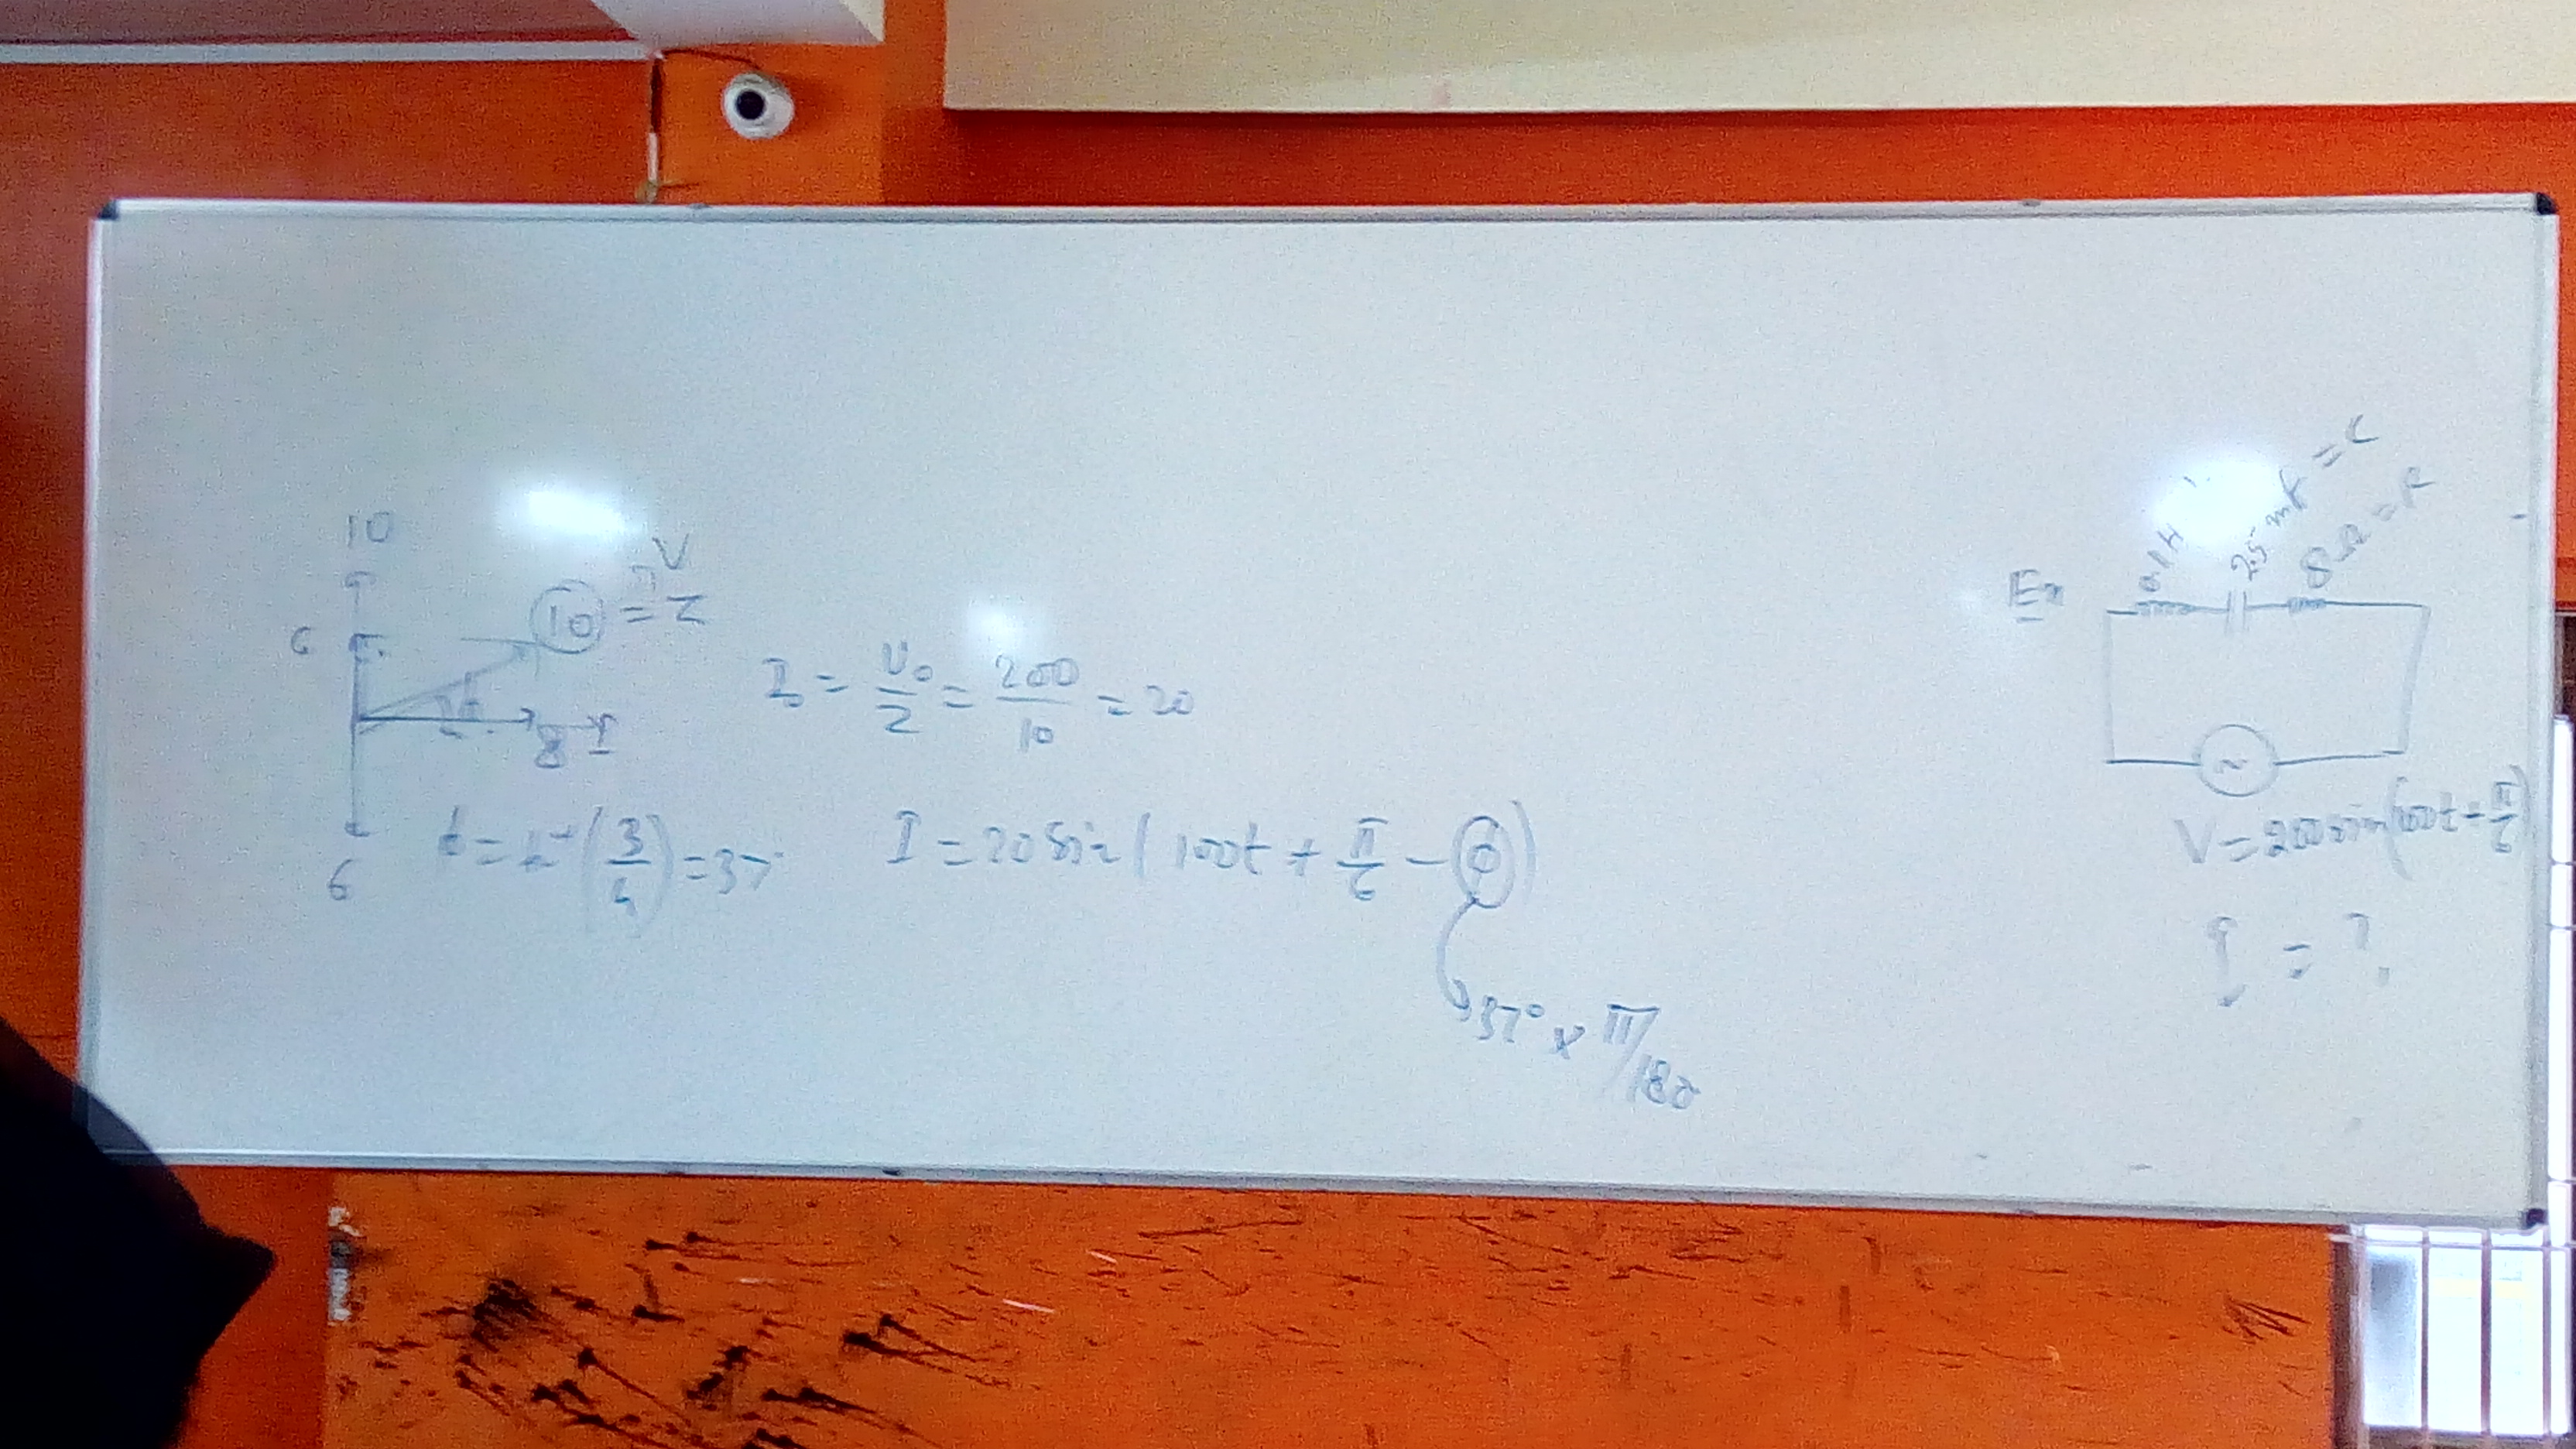 10
6
10 = V
Z
8 I
6
I₀ = V₀/Z = 200/10 = 20
(3/4) = 37°
I = 20 sin( 100t + π/6 - ϕ)
37° × π/180
Ex
0.1H
2.5 mf = C
8Ω = R
~
V = 200 sin(100t + π/6)
I = ?